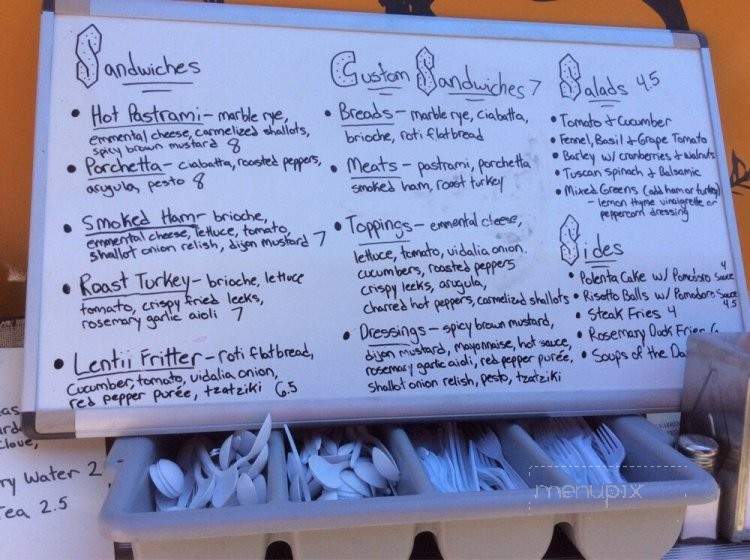 Sandwiches
• Hot Pastrami - marble rye,
emmental cheese, carmelized shallots,
spicy brown mustard 8
• Porchetta - ciabatta, roasted peppers,
arugula, pesto 8
• Smoked Ham - brioche,
emmental cheese, lettuce, tomato,
shallot onion relish, dijon mustard 7
• Roast Turkey - brioche, lettuce
tomato, crispy fried leeks,
rosemary garlic aioli 7
• Lentil Fritter - roti flatbread,
cucumber, tomato, vidalia onion,
red pepper purée, tzatziki 6.5
Custom Sandwiches 7
• Breads - marble rye, ciabatta,
brioche, roti flatbread
• Meats - pastrami, porchetta
smoked ham, roast turkey
• Toppings - emmental cheese,
lettuce, tomato, vidalia onion.
cucumbers, roasted peppers
crispy leeks, arugula,
charred hot peppers, carmelized shallots
• Dressings - spicy brown mustard,
dijon mustard, mayonnaise, hot sauce,
rosemary garlic aioli, red pepper purée,
shallot onion relish, pesto, tzatziki
Salads 4.5
• Tomato & Cucumber
• Fennel, Basil & Grape Tomato
• Barley w/ cranberries & walnuts
• Tuscan Spinach & Balsamic
• Mixed Greens (add ham or turkey)
- lemon thyme vinaigrette or
peppercorn dressing
Sides
• Polenta Cake w/ Pomodoro Sauce 4
• Risotto Balls w/ Pomodoro Sauce 4.5
• Steak Fries 4
• Rosemary Duck Fries
• Soups of the Da
clove,
ry Water 2
Tea 2.5
menupix